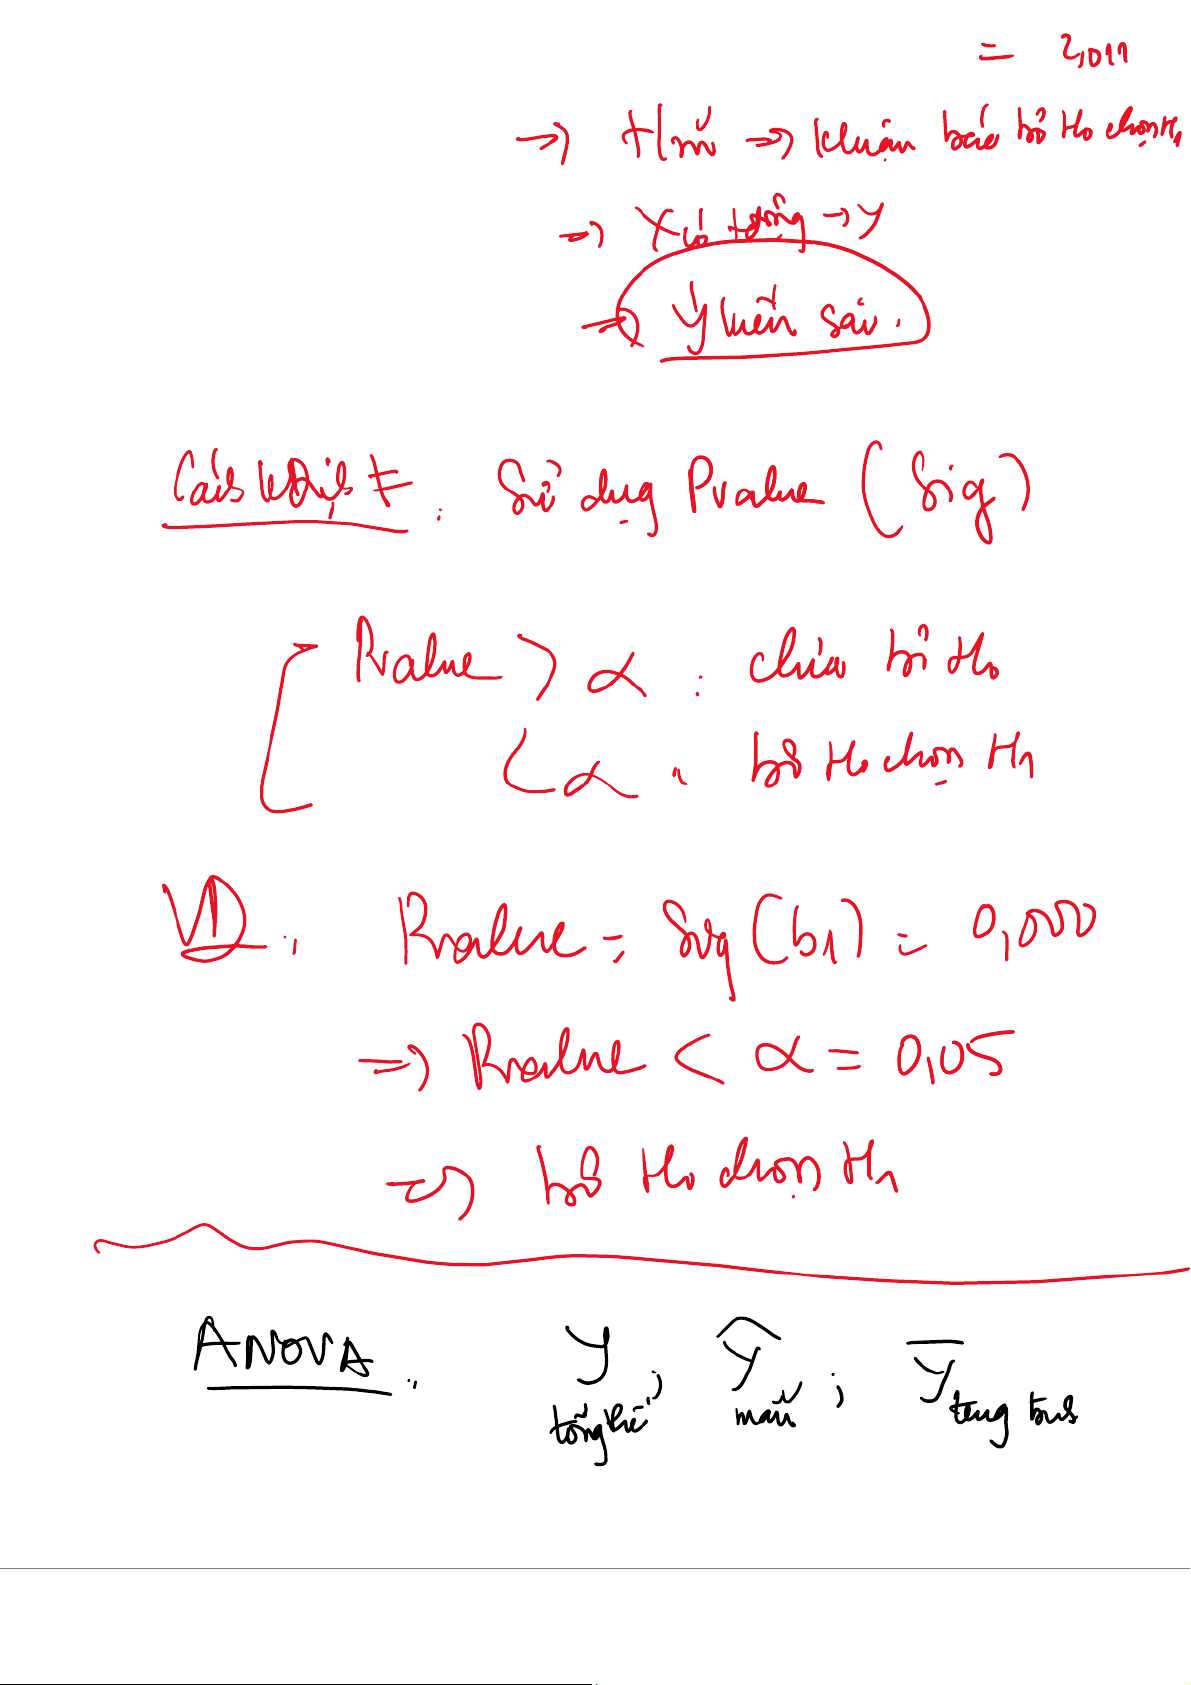 = 2,011
→ t HM → thuận bác bỏ H₀ chọn H₁
→ X có tđộng → Y
→ Ý kiến sai.
Cách kđịnh ≠ : Sử dụng Pvalue (Sig)
Pvalue > α : chưa bỏ H₀
< α : bỏ H₀ chọn H₁
VD : Pvalue = Sig (b1) = 0,000
=> Pvalue < α = 0,05
=> bỏ H₀ chọn H₁
ANOVA : Y ; Ŷ ; Y̅
tổng thể mẫu trung bình